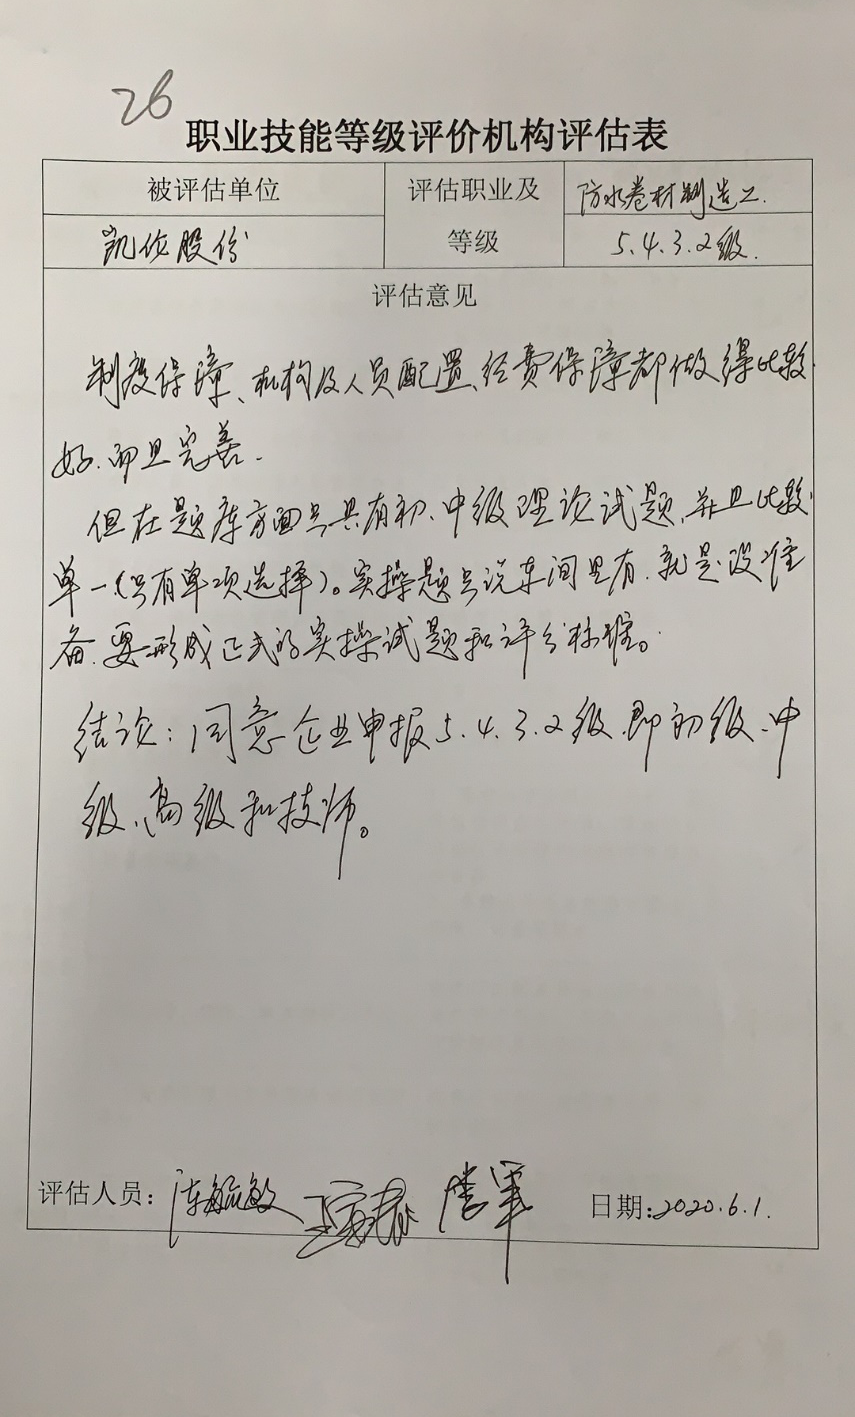 26
职业技能等级评价机构评估表
被评估单位
评估职业及
防水卷材制造工.
凯伦股份
等级
5.4.3.2级.
评估意见
制度保障、机构及人员配置、经费保障都做得比较
好.而且完善.
但在题库方面只具有初、中级理论试题,并且比较
单一(只有单项选择)。实操题只说车间里有.就是没准
备.要形成正式的实操试题和评分标准。
结论:同意企业申报5.4.3.2级.即初级、中
级、高级和技师。
评估人员:
日期:2020.6.1.